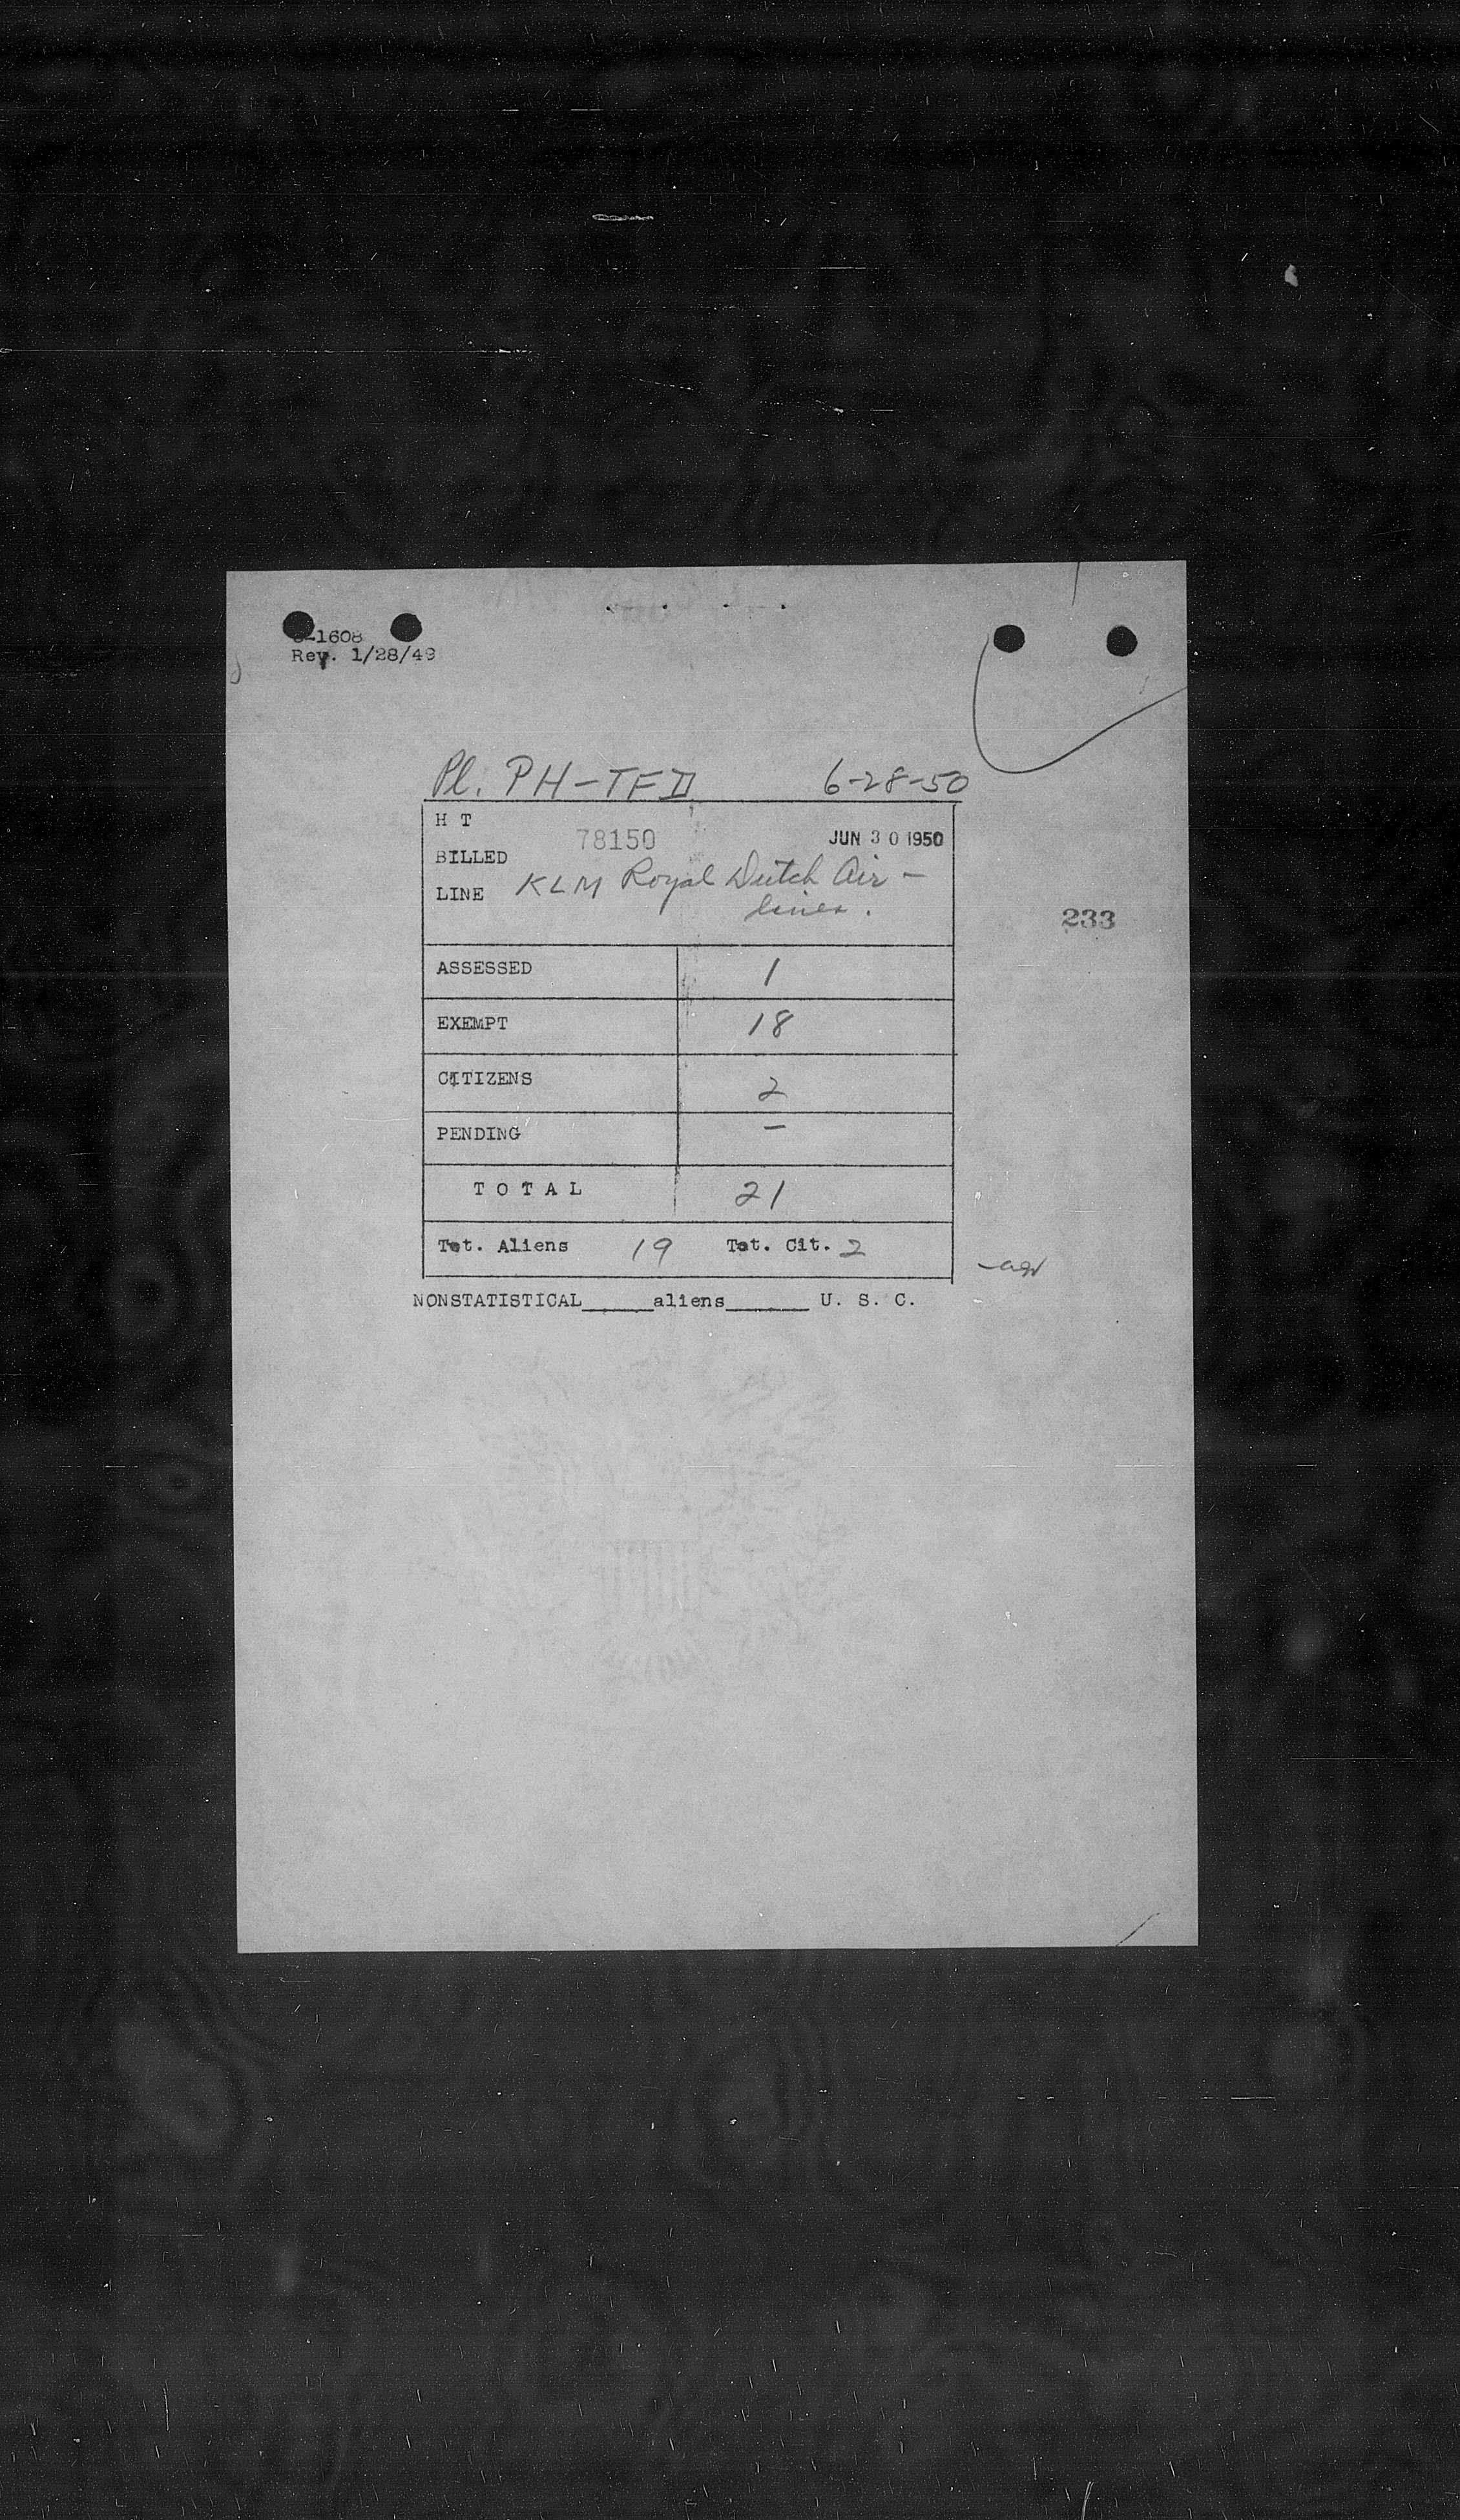 -1608
Rev. 1/28/49
Pl. PH-TFD 6-28-50
H T
78150 JUN 30 1950
BILLED
LINE KLM Royal Dutch Air-
lines.
233
ASSESSED 1
EXEMPT 18
CITIZENS 2
PENDING -
T O T A L 21
Tot. Aliens 19 Tot. Cit. 2
NONSTATISTICAL_____aliens______ U. S. C.